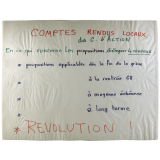 COMPTES RENDUS LOCAUX
du C. d'ACTION
En ce qui concerne les propositions distinguer le nouveau
* propositions applicables dès la fin de la grève
* à la rentrée 68
* à moyenne échéance
* à long terme
* REVOLUTION !